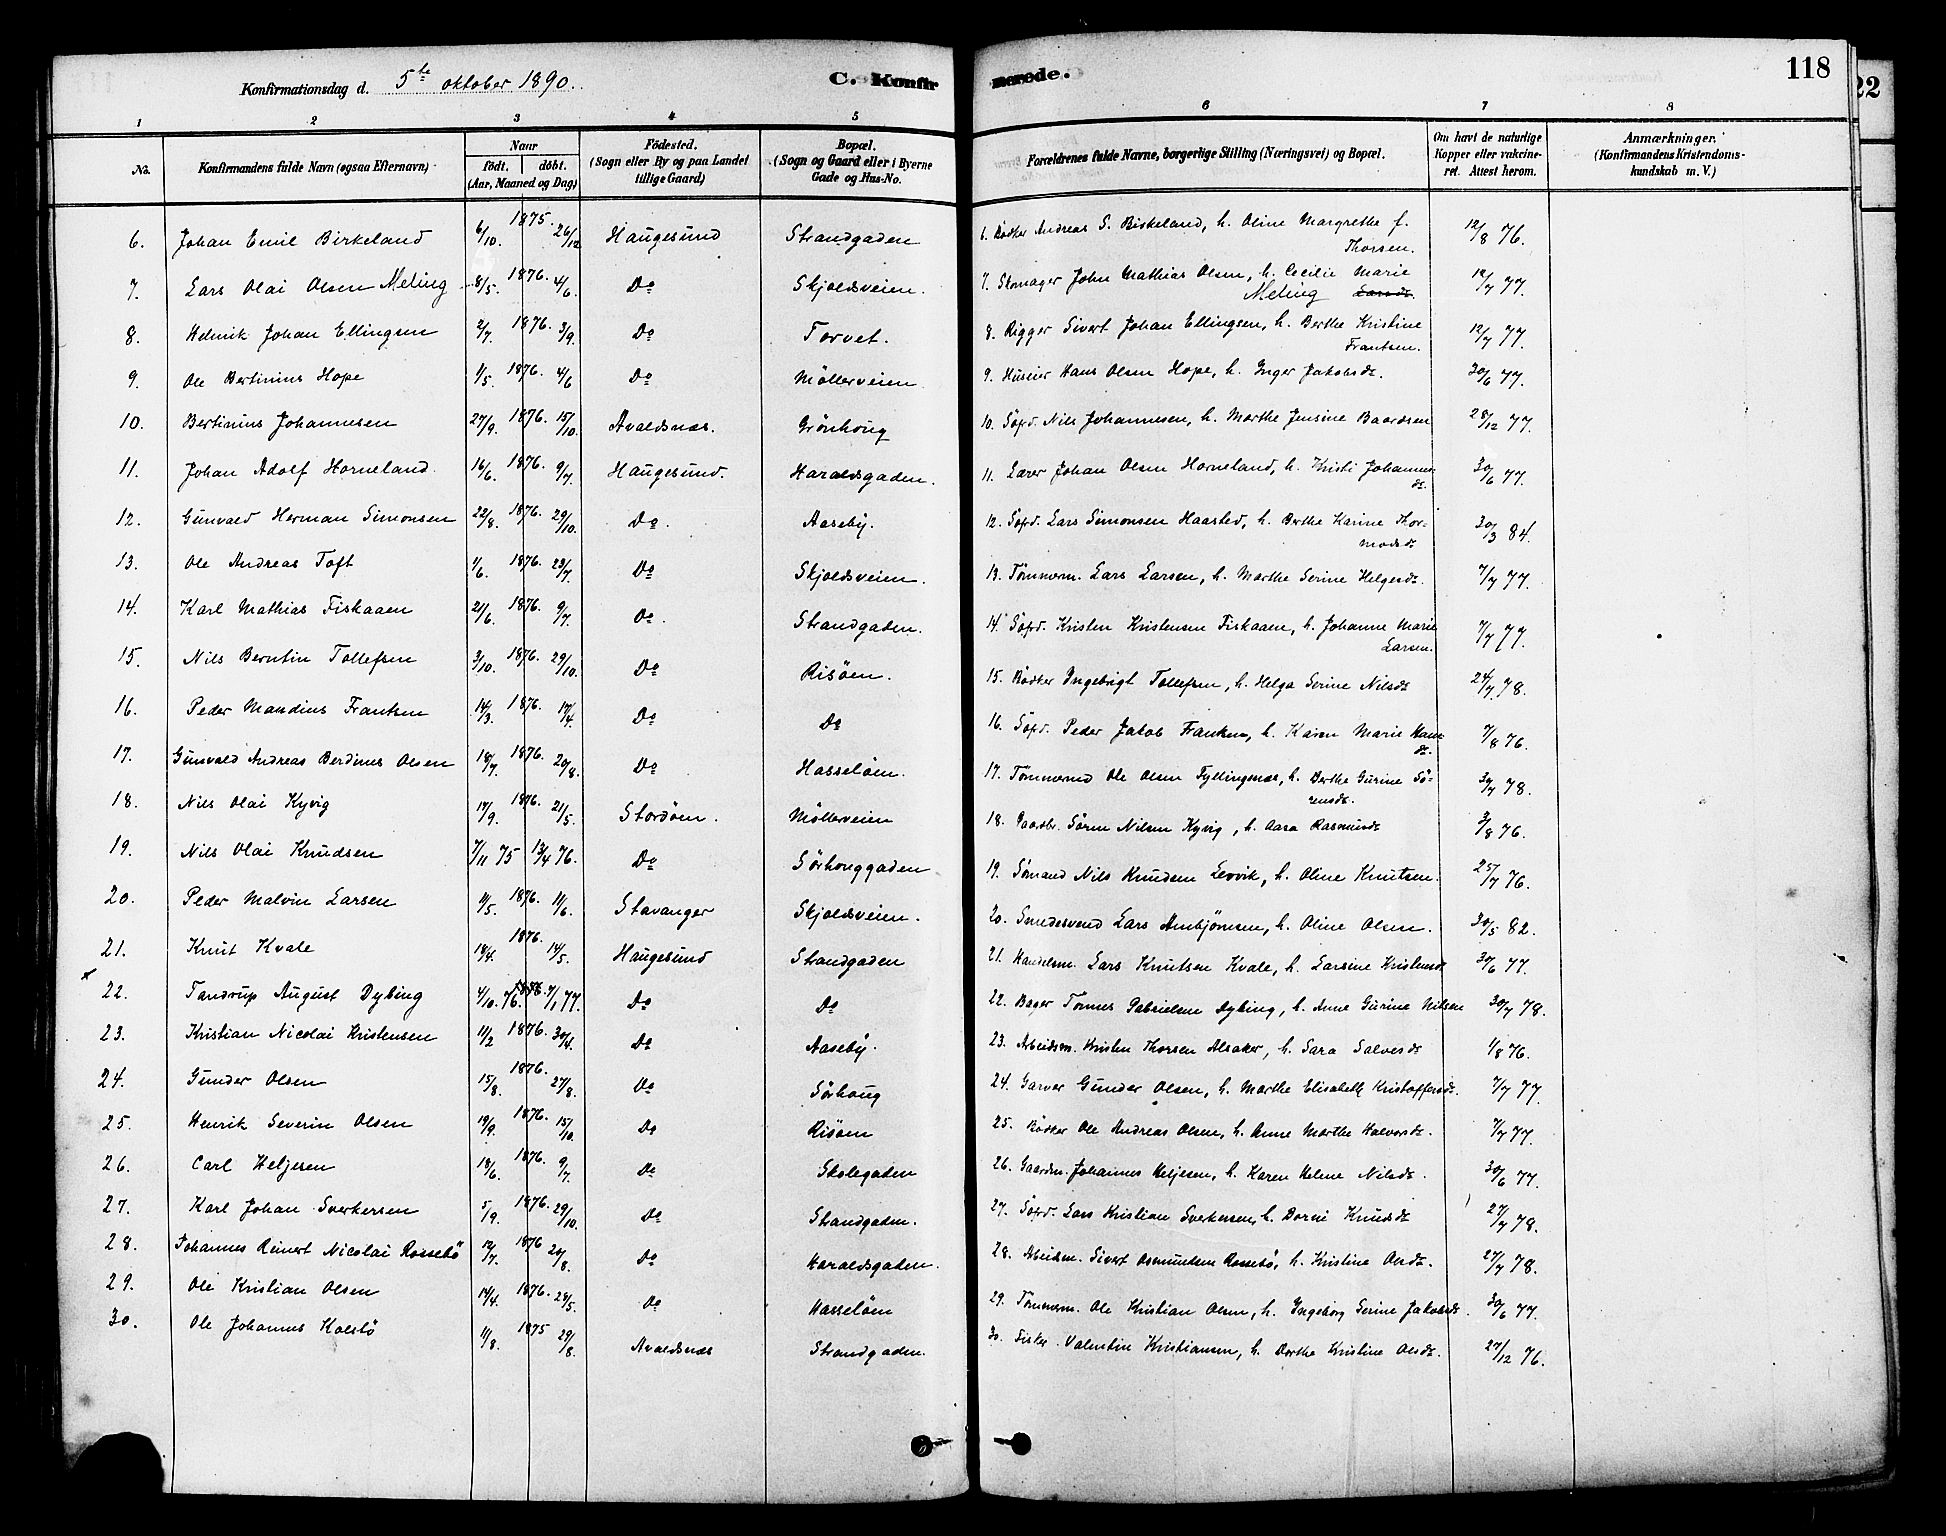 Konfirmationsdag d. 5te oktober 1890.
C. Konfirmerede.
118
22
1 2 3 4 5 6 7 8
No. Konfirmandens fulde Navn (ogsaa Efternavn). Naar født. døbt. (Aar, Maaned og Dag) Fødested. (Sogn eller By og paa Landet tillige Gaard) Bopæl. (Sogn og Gaard eller i Byerne Gade og Hus-No. Forældrenes fulde Navne, borgerlige Stilling (Næringsvei) og Bopæl. Om havt de naturlige Kopper eller vakcineret. Attest herom. Anmærkninger. (Konfirmandens Kristendomskundskab m. V.)
6. Johan Emil Birkeland 6/10. 1875. 26/12 Haugesund Strandgaden 6. Bødker Andreas S. Birkeland, h. Oline Margrethe f. Thorsen. 12/8 76.
7. Lars Olai Olsen Meling 8/5. 1876. 4/6. Do Skjoldsveien. 7. Skomager John Mathias Olsen, h. Cecilie Marie Meling Larsdt. 12/7 77.
8. Helmik Johan Ellingsen 2/7. 1876. 3/9. Do Torvet. 8. Rigger Sivert Johan Ellingsen, h. Berthe Kristine Frantsen. 12/7 77.
9. Ole Bertinius Hope 1/5. 1876. 4/6 Do Møllerveien 9. Huseier Hans Olsen Hope, h. Inger Jakobsdt. 30/6 77.
10. Bertinius Johannesen 27/9. 1876. 15/10. Avaldsnæs. Grønhoug 10. Søfd. Nils Johannesen, h. Marthe Jensine Baardsen 28/12 77.
11. Johan Adolf Horneland. 16/6. 1876. 9/7. Haugesund. Haraldsgaden. 11. Lærer Johan Olsen Horneland, h. Kristi Johannesdt. 30/6 77.
12. Gunvald Herman Simonsen 22/8. 1876. 29/10. Do. Aaseby. 12. Søfd. Lars Simonsen Haasted, h. Berthe Karine Thormodsdt 30/3 84.
13. Ole Andreas Toft 1/6. 1876. 23/7. Do Skjoldsveien. 13. Tømmerm. Lars Larsen, h. Marthe Serine Helgesdt. 7/7 77.
14. Karl Mathias Fiskaaen 21/6. 1876. 9/7. Do. Strandgaden. 14. Søfd. Kristen Kristensen Fiskaaen, h. Johanne Marie Larsen. 7/7 77.
15. Nils Berntin Tollefsen 3/10. 1876. 29/10. Do Risøen. 15. Bødker Ingebrigt Tollefsen, h. Helga Serine Nilsdt 24/7 78.
16. Peder Mandius Frantsen 14/3. 1876. 17/4. Do Do 16. Søfd. Peder Jakob Frantsen, h. Karen Marie Hansdt. 7/8 76.
17. Gunvald Andreas Berdines Olsen 18/7. 1876. 20/8. Do Hasseløen. 17. Tømmermd Ole Olsen Fyllingsnæs, h. Berthe Gurine Sørensdt. 30/7 78.
18. Nils Olai Kyvig 17/9. 1876. 21/5. Stordøen. Møllerveien 18. Gaardbr. Søren Nilsen Kyvig, h. Aasa Rasmusdt 3/8 76.
19. Nils Olai Knudsen 7/11 75 13/4 76. Do Sørhouggaden 19. Sømand Nils Knudsen Levvik, h. Oline Knutsen. 25/7 76.
20. Peder Malvin Larsen 11/5. 1876. 11/6. Stavanger Skjoldsveien. 20. Smedesvend Lars Arnbjørnsen, h. Oline Olsen. 30/5 82.
21. Knut Kvale 14/4. 1876. 14/5. Haugesund Strandgaden 21. Handelsm. Lars Knutsen Kvale, h. Larsine Kristensdt 30/6 77.
22. Tandrup August Dybing 4/10. 76. 7/1 77. Do Do 22. Bager Tønnes Gabrielsen Dybing, h. Anne Gurine Nilsen 30/7 78.
23. Kristian Nicolai Kristensen 11/2 1876. 30/4. Do Aaseby. 23. Arbeidsm. Kristen Thorsen Alsaker, h. Sara Salvesdt 1/8 76.
24. Gunder Olsen 15/8. 1876. 27/8. Do Sørhoug 24. Garver Gunder Olsen, h. Marthe Elisabeth Kristoffersdt. 7/7 77.
25. Henrik Severin Olsen 19/9. 1876. 15/10. Do Risøen 25. Bødker Ole Andreas Olsen, h. Anne Marthe Halvorsdt. 7/7 77.
26. Carl Heljesen 18/6. 1876. 9/7. Do Skolegaden 26. Gaardm. Johannes Heljesen, h. Karen Helene Nilsdt. 30/6 77.
27. Karl Johan Sverkersen 5/9. 1876. 29/10. Do Strandgaden. 27. Søfd. Lars Kristian Sverkersen, h. Dorthi Knudsdt 27/7 78.
28. Johannes Reinert Nicolai Rossebø 12/7. 1876 20/8. Do Haraldsgaden. 28. Arbeidsm. Sivert Osmundsen Rossebø, h. Kristine Olsdt. 27/7 78.
29. Ole Kristian Olsen 14/4. 1876. 28/5. Do Hasseløen 29. Tømmerm. Ole Kristian Olsen, h. Ingeborg Serine Jakobsdt. 30/6 77.
30. Ole Johannes Kolstø 11/8. 1875 29/8. Avaldsnæs Strandgaden. 30. Fisker Valentin Kristiansen, h. Dorthe Kristine Olsdt. 27/12 76.